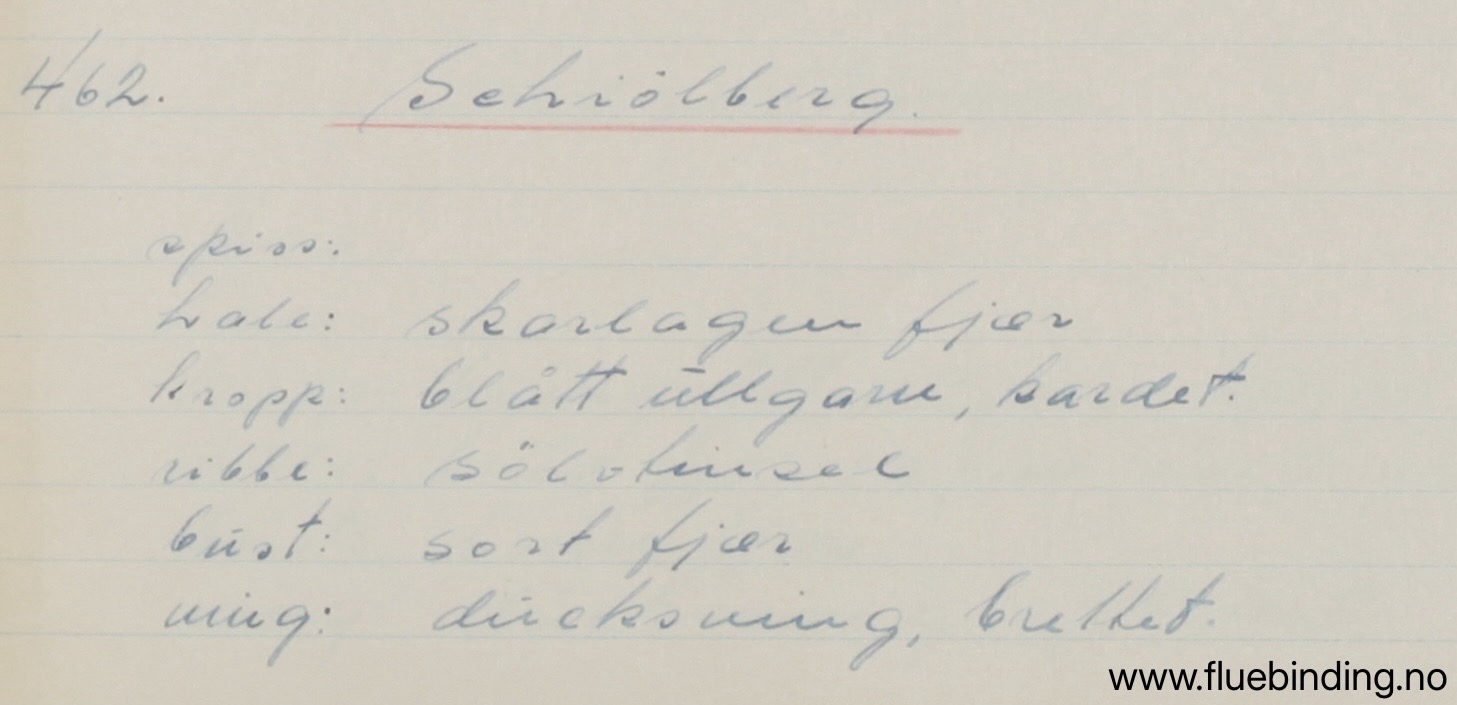 462. Schiölberg.
spiss:
hale: skarlagen fjær
kropp: blått ullgarn, kardet.
ribbe: sölvtinsel
bust: sort fjær
ving: ducksving, brettet.
www.fluebinding.no